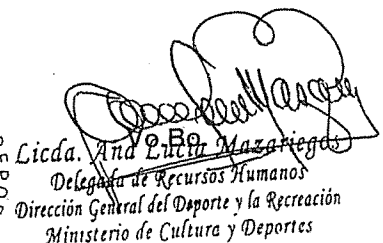 Vo.Bo.
Licda. Ana Lucía Mazariegos
Delegada de Recursos Humanos
Dirección General del Deporte y la Recreación
Ministerio de Cultura y Deportes